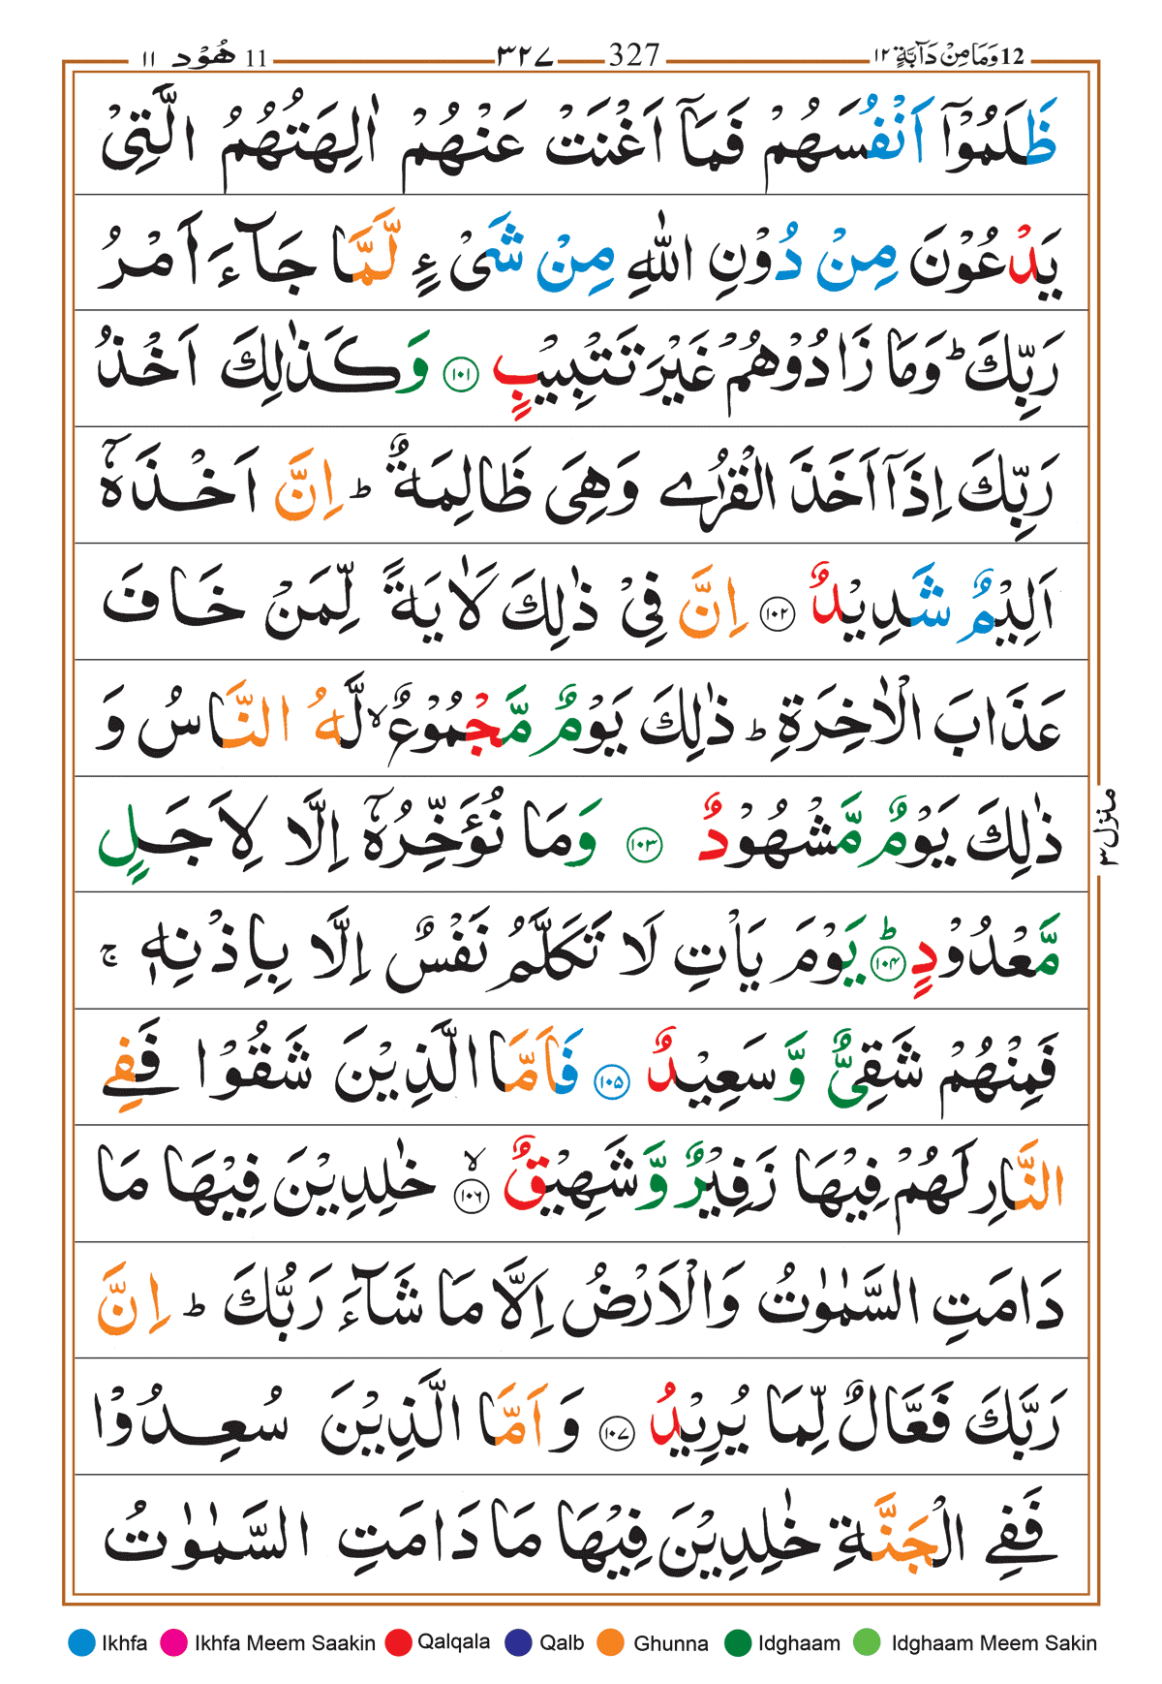 12 وَمَا مِنْ دَآبَّةٍ ١٢ 327 ٣٢٧ 11 هُوْد ١١
ظَلَمُوْۤا اَنْفُسَهُمْ فَمَاۤ اَغْنَتْ عَنْهُمْ اٰلِهَتُهُمُ الَّتِیْ
یَدْعُوْنَ مِنْ دُوْنِ اللّٰهِ مِنْ شَیْءٍ لَّمَّا جَآءَ اَمْرُ
رَبِّكَ ؕ وَمَا زَادُوْهُمْ غَیْرَ تَتْبِیْبٍ ﴿۱۰۱﴾ وَكَذٰلِكَ اَخْذُ
رَبِّكَ اِذَاۤ اَخَذَ الْقُرٰے وَهِیَ ظَالِمَةٌ ؕ اِنَّ اَخْذَهٗۤ
اَلِیْمٌ شَدِیْدٌ ﴿۱۰۲﴾ اِنَّ فِیْ ذٰلِكَ لَاٰیَةً لِّمَنْ خَافَ
عَذَابَ الْاٰخِرَةِ ؕ ذٰلِكَ یَوْمٌ مَّجْمُوْعٌ ۙ لَّهُ النَّاسُ وَ
ذٰلِكَ یَوْمٌ مَّشْهُوْدٌ ﴿۱۰۳﴾ وَمَا نُؤَخِّرُهٗۤ اِلَّا لِاَجَلٍ
مَّعْدُوْدٍ ﴿۱۰۴﴾ؕ یَوْمَ یَاْتِ لَا تَكَلَّمُ نَفْسٌ اِلَّا بِاِذْنِهٖ ۚ
فَمِنْهُمْ شَقِیٌّ وَّسَعِیْدٌ ﴿۱۰۵﴾ فَاَمَّا الَّذِیْنَ شَقُوْا فَفِی
النَّارِ لَهُمْ فِیْهَا زَفِیْرٌ وَّشَهِیْقٌ ﴿۱۰۶﴾ۙ خٰلِدِیْنَ فِیْهَا مَا
دَامَتِ السَّمٰوٰتُ وَالْاَرْضُ اِلَّا مَا شَآءَ رَبُّكَ ؕ اِنَّ
رَبَّكَ فَعَّالٌ لِّمَا یُرِیْدُ ﴿۱۰۷﴾ وَاَمَّا الَّذِیْنَ سُعِدُوْا
فَفِی الْجَنَّةِ خٰلِدِیْنَ فِیْهَا مَا دَامَتِ السَّمٰوٰتُ
منزل ٣
Ikhfa Ikhfa Meem Saakin Qalqala Qalb Ghunna Idghaam Idghaam Meem Sakin